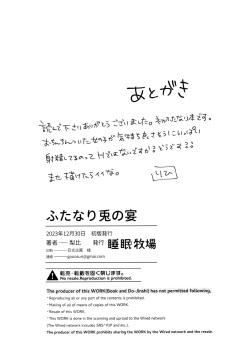 あとがき
読んで下さりありがとうございました。初ふたなり本です。
おちんちんついた女の子が気持ち良さそうにいっぱい
射精してるのってHではないですか?
また描けたらイイな。
ふたなり兎の宴
2023年12月30日 初版発行
著者 ── 梨比 発行 睡眠牧場
転売・転載を固く禁じます。
No resale.Reproduction is prohibited.
The producer of this WORK(Book and Do-Jinshi) has not permitted following.
・Reproducing all or any part of the contents is prohibited.
・Making of all of means of copies of this WORK.
・Resale of this WORK.
・This WORK is done in the scanning and upload to the Wired network
(The Wired network includes SNS･P2P and etc.).
The producer of this WORK prohibits sharing the WORK by the Wired network and the resale.